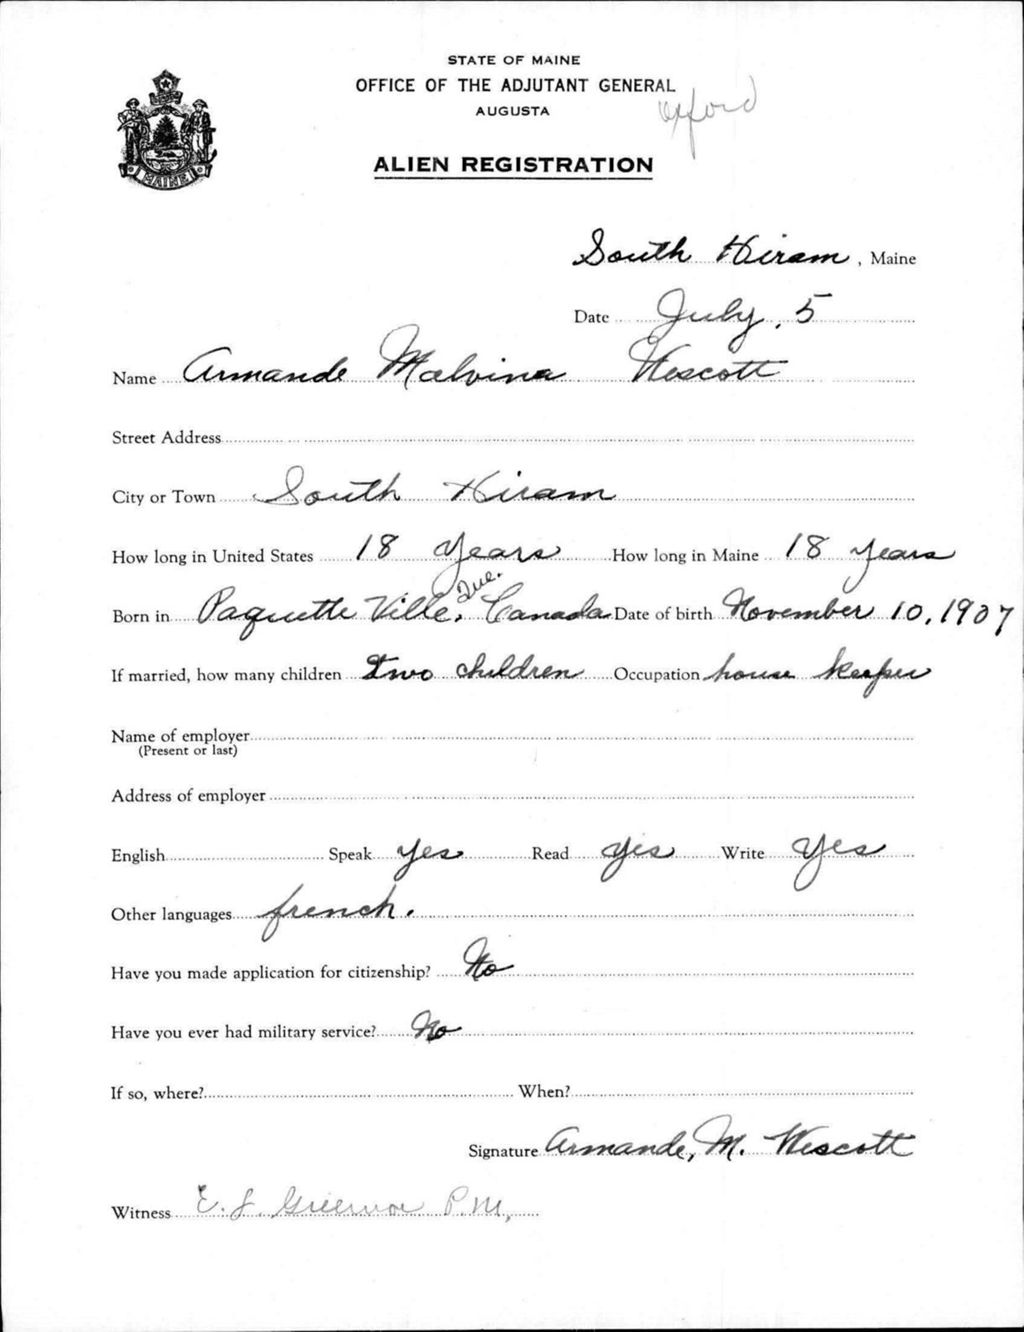 STATE OF MAINE
OFFICE OF THE ADJUTANT GENERAL
AUGUSTA
Oxford
ALIEN REGISTRATION
MAINE
South Hiram, Maine
Date July, 5
Name Armande Malvina Wescott
Street Address
City or Town South Hiram
How long in United States 18 years How long in Maine 18 years
Born in Paquette Ville, Que. Canada Date of birth November 10, 1907
If married, how many children Two children Occupation house keeper
Name of employer
(Present or last)
Address of employer
English Speak yes Read yes Write yes
Other languages french.
Have you made application for citizenship? No
Have you ever had military service? No
If so, where? When?
Signature Armande, M. Wescott
Witness E. J. P.M,